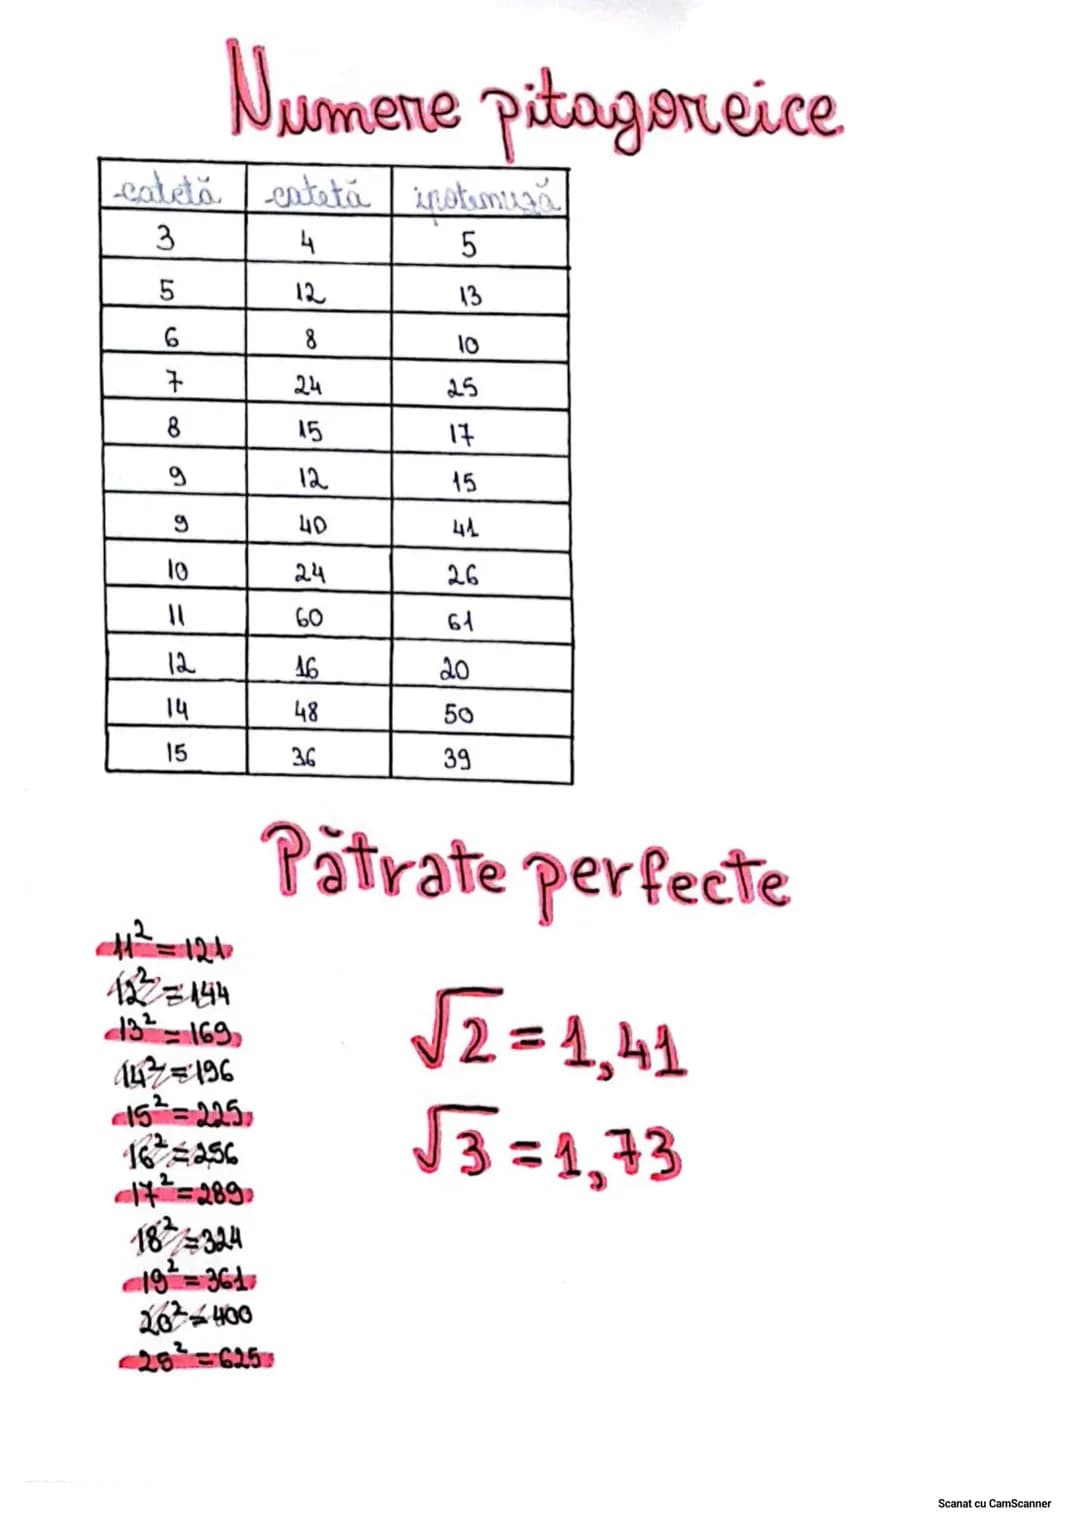 Numere pitagoreice
catetă catetă ipotenuză
3 4 5
5 12 13
6 8 10
7 24 25
8 15 17
9 12 15
9 40 41
10 24 26
11 60 61
12 16 20
14 48 50
15 36 39
Pătrate perfecte
11² = 121
12² = 144
13² = 169
14² = 196
15² = 225
16² = 256
17² = 289
18² = 324
19² = 361
20² = 400
25² = 625
√2 = 1,41
√3 = 1,73
Scanat cu CamScanner